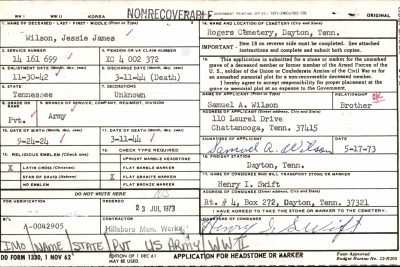 WW I WW II KOREA
NONRECOVERABLE
ORIGINAL
Wilson, Jessie James
2. SERVICE NUMBER
14 161 699
3. PENSION OR VA CLAIM NUMBER
XC 4 002 372
11-30-42
3-11-44 (Death)
STATE
Tennessee
Unknown
Pvt.
Army
10. DATE OF BIRTH (Month, Day, Year)
9-24-24
11. DATE OF DEATH (Month, Day, Year)
3-11-44
12. RELIGIOUS EMBLEM (Check one)
X LATIN CROSS (Christian)
STAR OF DAVID (Hebrew)
NO EMBLEM
TYPE REQUIRED
UPRIGHT MARBLE HEADSTONE
FLAT MARBLE MARKER
X FLAT GRANITE MARKER
FLAT BRONZE MARKER
DO NOT WRITE HERE
A-0042905
23 JUL 1973
Hillsboro Mon. Works
IMO NAME STATE PVT US ARMY WW II
14. NAME AND LOCATION OF CEMETERY (City and State)
Rogers Cemetery, Dayton, Tenn.
IMPORTANT - Item 18 on reverse side must be completed. See attached instructions and complete and submit both copies.
This application is submitted for a stone or marker for the unmarked grave of a deceased member or former member of the Armed Forces of the U. S., soldier of the Union or Confederate Armies of the Civil War or for an unmarked memorial plot for a non-recoverable deceased member.
I hereby agree to accept responsibility for proper placement at the grave or memorial plot at no expense to the Government.
RELATIONSHIP
Samuel A. Wilson
Brother
110 Laurel Drive
Chattanooga, Tenn. 37415
SIGNATURE OF APPLICANT
DATE
Samuel A. Wilson
5-17-73
16. FREIGHT STATION
Dayton, Tenn.
17. NAME OF CONSIGNEE WHO WILL TRANSPORT STONE OR MARKER
Henry I. Swift
ADDRESS OF CONSIGNEE (City and State)
Rt. # 4, Box 272, Dayton, Tenn. 37321
I HAVE AGREED TO TAKE THE STONE OR MARKER TO THE CEMETERY.
Henry I Swift
DD FORM 1330, 1 NOV 62
EDITION OF 1 DEC 61 MAY BE USED.
APPLICATION FOR HEADSTONE OR MARKER
Form Approved
Budget Bureau No. 22-R009